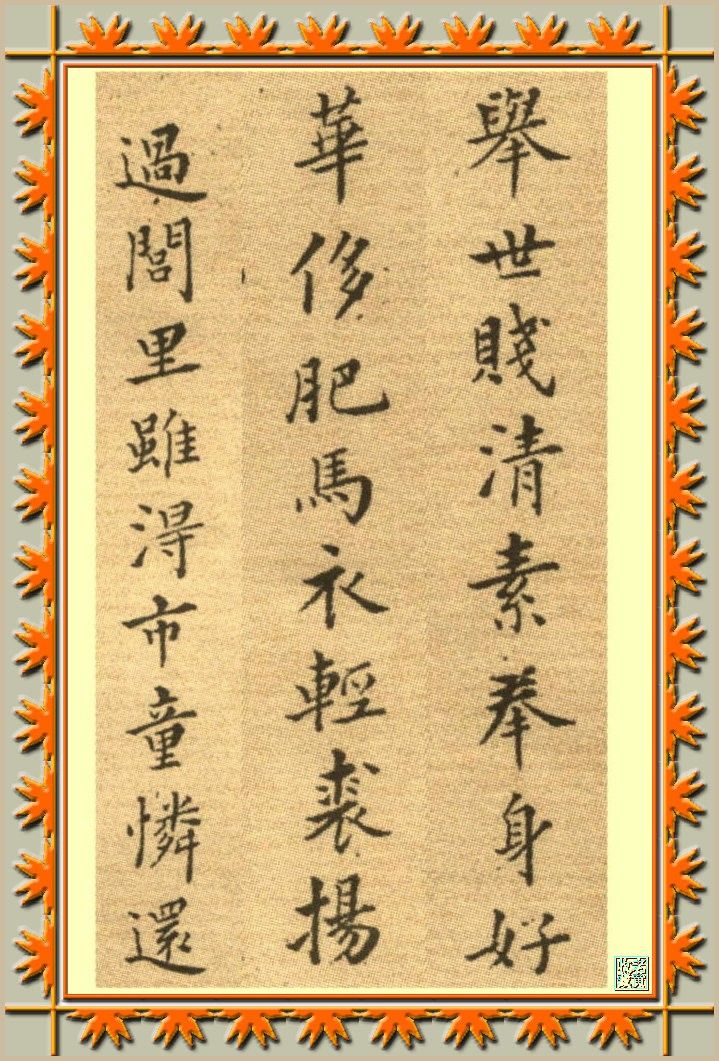 舉世賤清素奉身好
華侈肥馬衣輕裘揚
過閭里雖得市童憐還